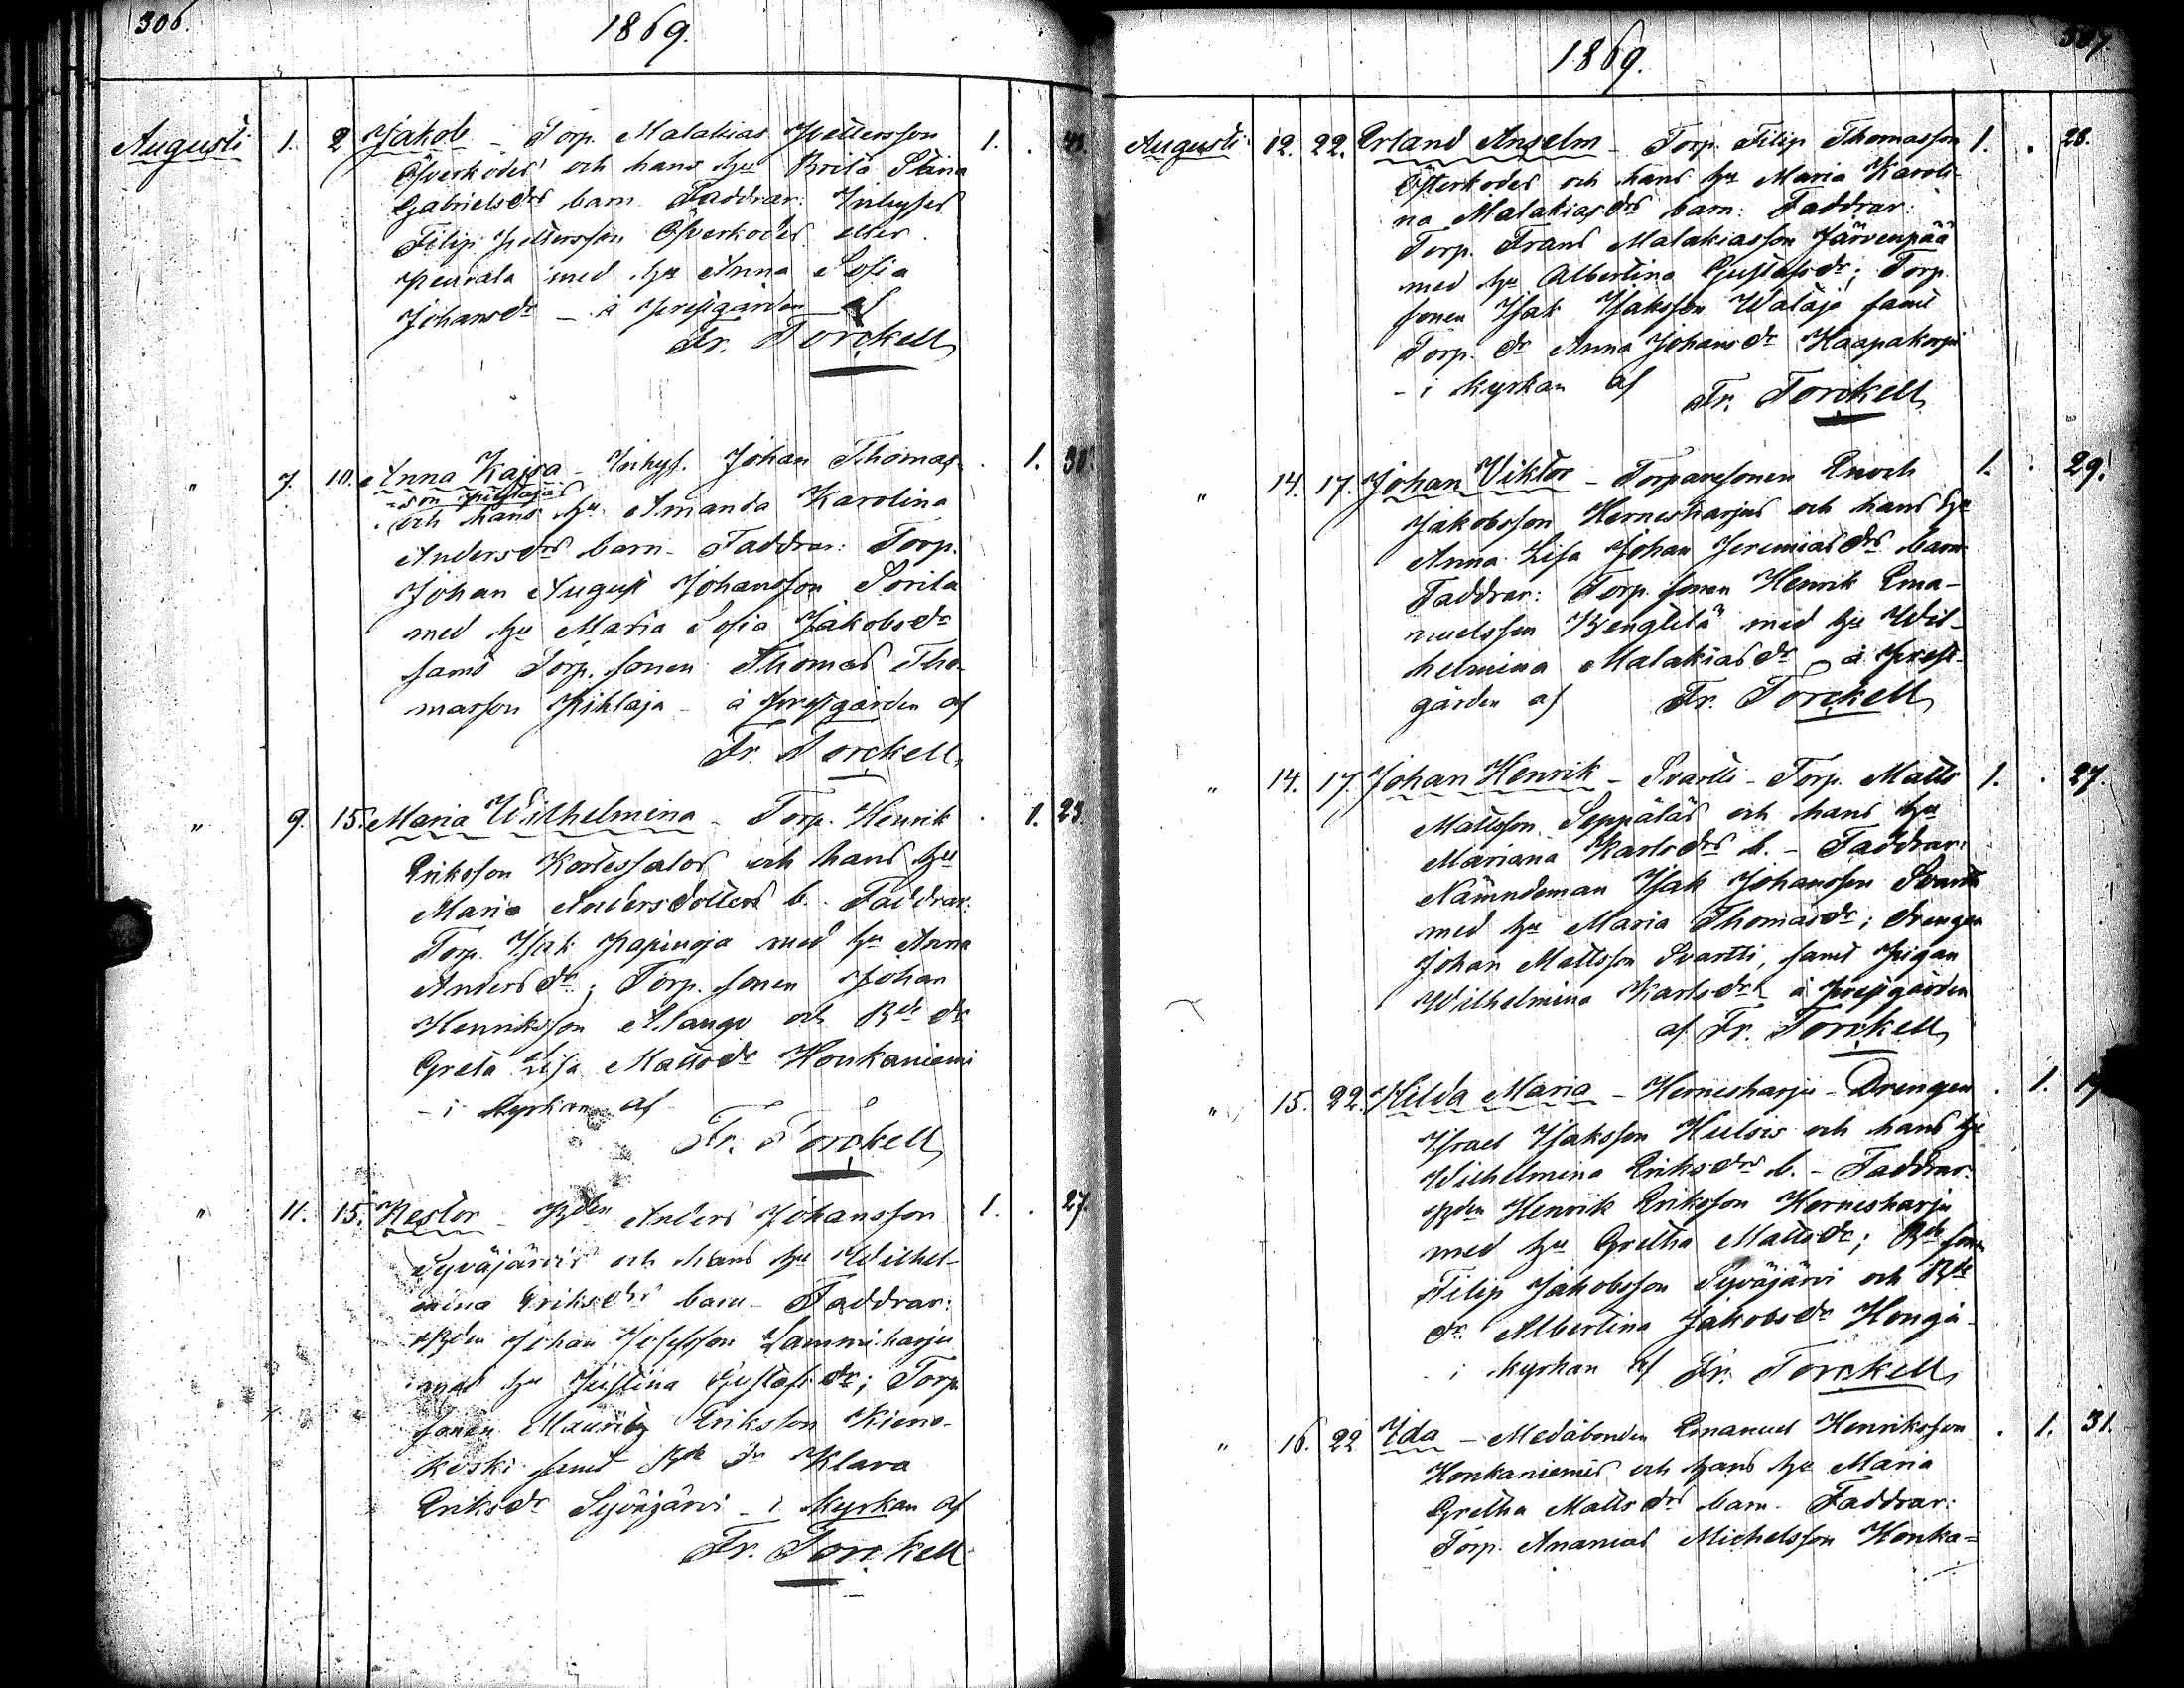 306.
1869.
Augusti 1. 2 Jakob - Torp. Malakias Pettersson 1.
Öfverkodes och hans hu Brita Stina
Gabrielsdrs barn. Faddrar: Inhyses
Filip Pettersson Öfverkodes eller
Peurala med hu Anna Sofia
Johansdr - å prestgården af
Fr. Torckell
" 7. 10. Anna Kajsa - Inhys. Johan Thomas- 1. 30
son Pihlajas
och hans hu Amanda Karolina
Andersdrs barn - Faddrar: Torp.
Johan August Johansson Sorila
med hu Maria Sofia Jakobsdr
samt Torp. sonen Thomas Tho-
masson Pihlaja - å prestgården af
Fr. Torckell
" 9. 15. Maria Wilhelmina - Torp. Henrik 1. 23.
Eriksson Kortessalos och hans hu
Maria Andersdotters b. Faddrar:
Torp. Isak Papinoja med hu Anna
Andersdr; Torp. sonen Johan
Henriksson Alango och Bde dr
Greta Lisa Mattsdr Honkaniemi
- i kyrkan af
Fr. Torckell
" 11. 15. Nestor - Bden Anders Johansson 1. 27.
Syväjärvis och hans hu Wilhel-
mina Eriksdrs barn - Faddrar:
Bden Johan Josefsson Lammiharju
med hu Justina Gustafsdr; Torp.
sonen Mauritz Eriksson Kieno-
koski samt Bde dr Klara
Eriksdr Syväjärvi - i kyrkan af
Fr. Torckell
307.
1869.
Augusti 12. 22. Erland Anselm - Torp. Filip Thomasson 1. 28.
Österkodes och hans hu Maria Karoli-
na Malakiasdrs barn: Faddrar:
Torp. Frans Malakiasson Järvenpää
med hu Albertina Gustafsdr; Torp.
sonen Isak Isaksson Walaja samt
Torp. dr Anna Johansdr Haapakorpi
- i kyrkan af Fr. Torckell
" 14. 17. Johan Viktor - Torparesonen Enoch 1. 29.
Jakobsson Hernesharjus och hans hu
Anna Lisa Johan Jeremiasdrs barn
Faddrar: Torp. sonen Henrik Ema-
nuelsson Kengitä med hu Wil-
helmina Malakiasdr - å prest-
gården af Fr. Torckell
" 14. 17. Johan Henrik - Svartti - Torp. Matts 1. 27.
Mattsson Seppäläs och hans hu
Mariana Karlsdrs b. - Faddrar:
Nämndeman Isak Johansson Svartti
med hu Maria Thomasdr; drengen
Johan Mattsson Svartti, samt pigan
Wilhelmina Karlsdr å prestgården
af Fr. Torckell
" 15. 22. Hilda Maria - Hernesharju - Drengen 1.
Israel Isaksson Hulsis och hans hu
Wilhelmina Eriksdrs b. - Faddrar:
Bden Henrik Eriksson Hernesharju
med hu Gretha Mattsdr; Bde son
Filip Jakobsson Syväjärvi och Bde
dr Albertina Jakobsdr Honga -
i kyrkan af Fr. Torckell
" 16. 22 Ida - Medåbonden Emanuel Henriksson 1. 31.
Honkaniemis och hans hu Maria
Gretha Mattsdrs barn - Faddrar:
Torp. Ananias Michelsson Honka=